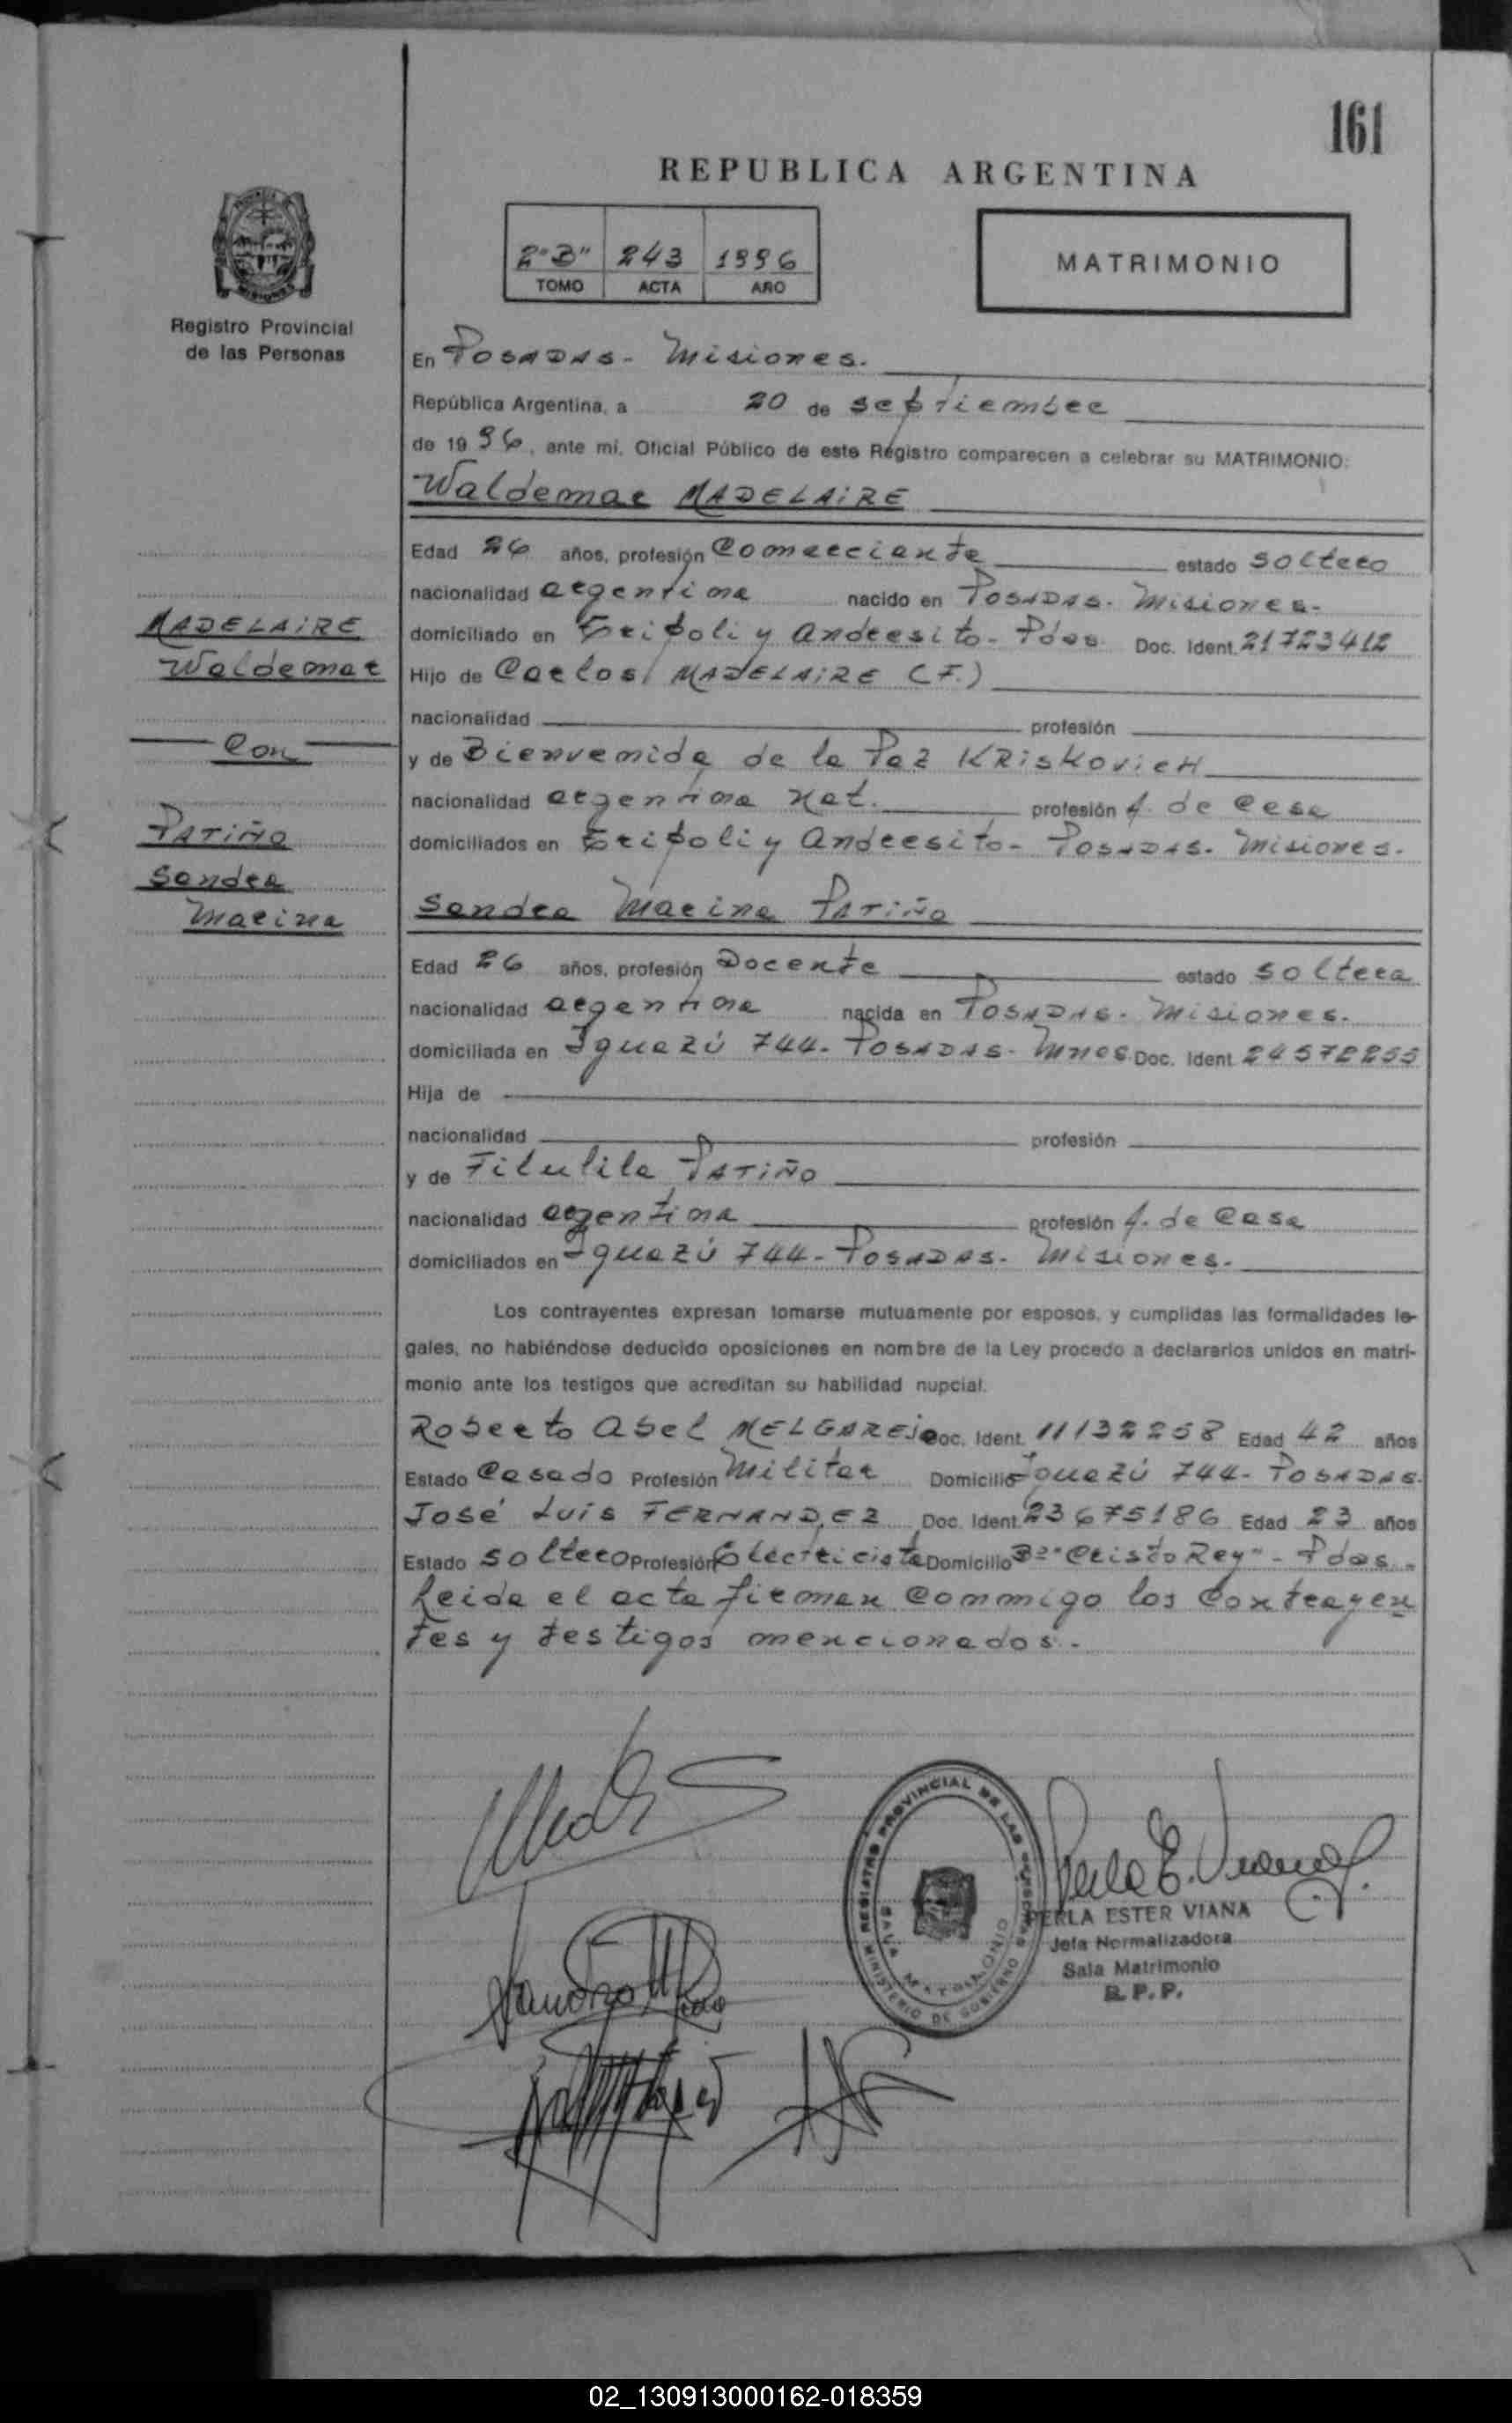 161
REPUBLICA ARGENTINA
2"B" 243 1996
TOMO ACTA AÑO
MATRIMONIO
Registro Provincial
de las Personas
En POSADAS - Misiones.
República Argentina, a 20 de septiembre
de 1996, ante mi, Oficial Público de este Registro comparecen a celebrar su MATRIMONIO:
Waldemar MADELAIRE
Edad 26 años, profesión Comerciante estado soltero
nacionalidad argentina nacido en POSADAS - Misiones -
MADELAIRE
domiciliado en Tripoli y Andresito - Pdas. Doc. Ident. 21723412
Waldemar
Hijo de Carlos MADELAIRE (F.)
nacionalidad profesión
Con
y de Bienvenida de la Paz KRISKOVICH
nacionalidad argentina nat. profesión A. de Casa
PATIÑO
domiciliados en Tripoli y Andresito - POSADAS - Misiones -
Sandra
Marina
Sandra Marina PATIÑO
Edad 26 años, profesión Docente estado soltera
nacionalidad argentina nacida en POSADAS - Misiones.
domiciliada en Iguazú 744 - POSADAS - Mnes Doc. Ident. 24572255
Hija de
nacionalidad profesión
y de Filulila PATIÑO
nacionalidad argentina profesión A. de Casa
domiciliados en Iguazú 744 - POSADAS - Misiones.
Los contrayentes expresan tomarse mutuamente por esposos, y cumplidas las formalidades le-
gales, no habiéndose deducido oposiciones en nombre de la Ley procedo a declararlos unidos en matri-
monio ante los testigos que acreditan su habilidad nupcial.
Roberto Abel MELGAREJO Doc. Ident. 11132258 Edad 42 años
Estado Casado Profesión Militar Domicilio Iguazú 744 - POSADAS.
José Luis FERNANDEZ Doc. Ident. 23675186 Edad 23 años
Estado soltero Profesión Electricista Domicilio Bº "Cristo Rey" - Pdas.
Leida el acta firman conmigo los Contrayen
tes y testigos mencionados.-
MINISTERIO DE GOBIERNO
REGISTRO PROVINCIAL DE LAS PERSONAS
SALA MATRIMONIO
Perla E. Viana
PERLA ESTER VIANA
Jefa Normalizadora
Sala Matrimonio
R.P.P.
02_130913000162-018359